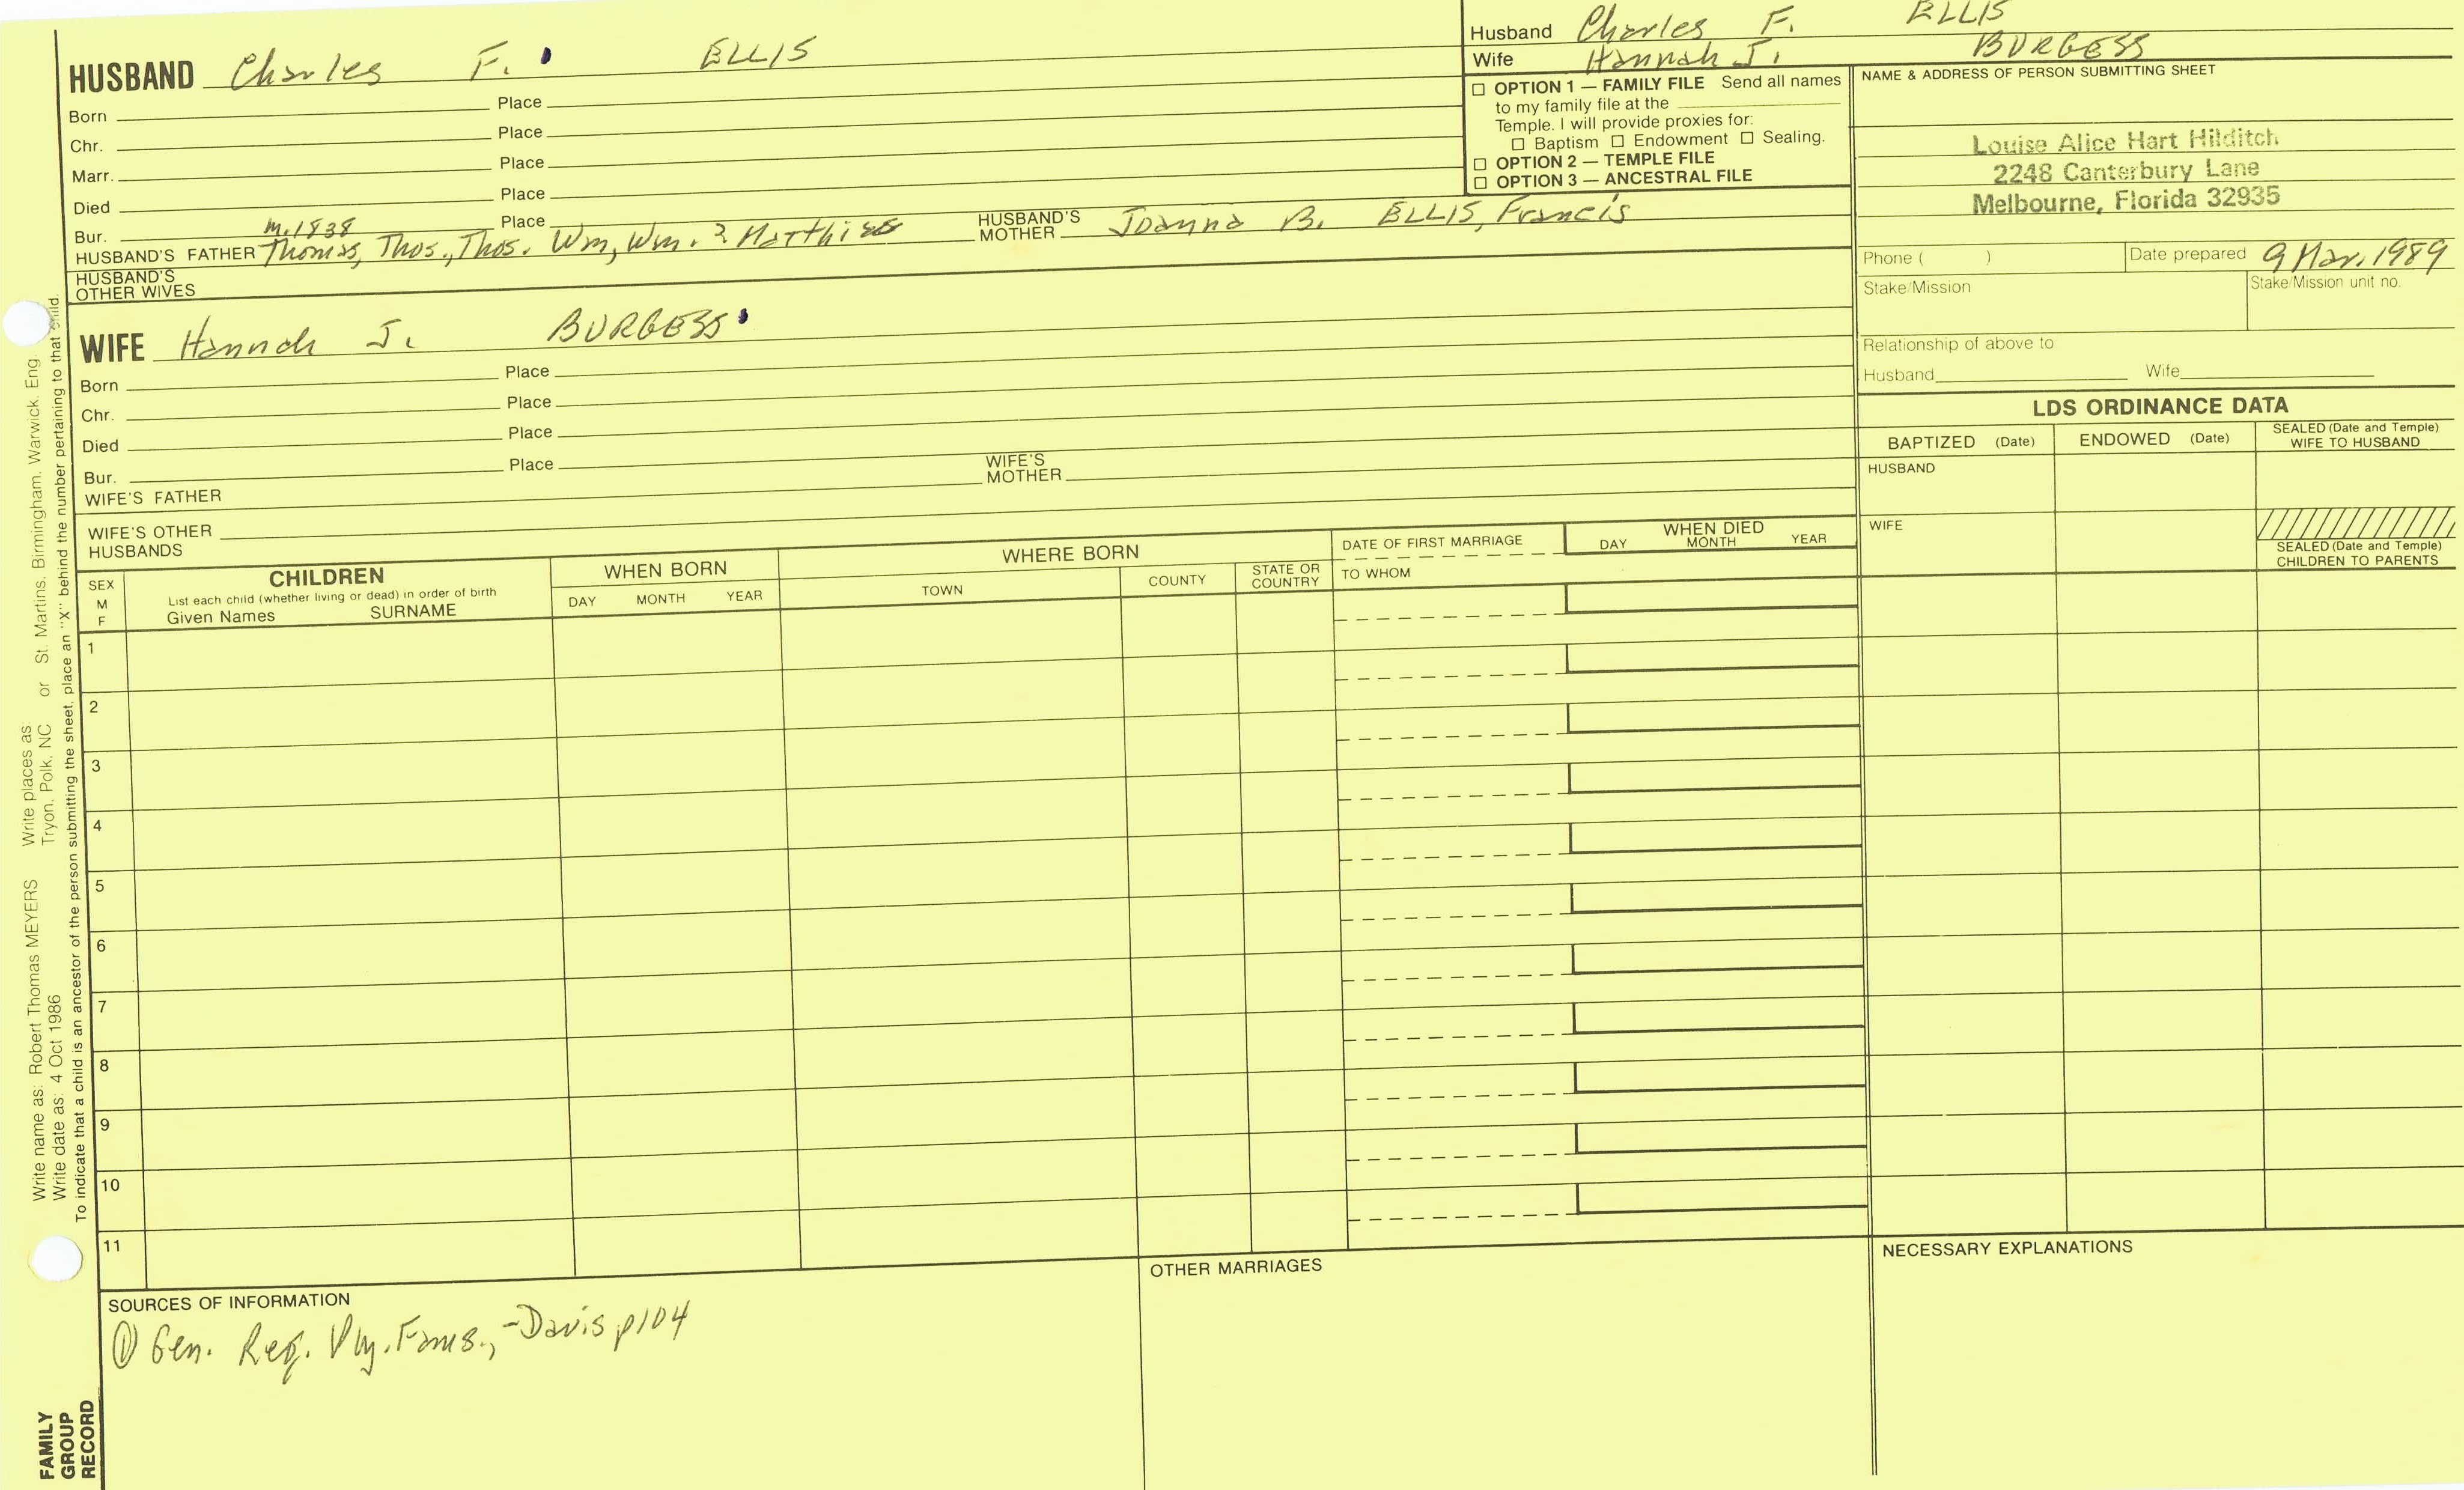 HUSBAND Charles F. ELLIS
Born Place
Chr. Place
Marr. Place
Died Place
Bur. Place
m. 1838
HUSBAND'S FATHER Thomas, Thos., Thos. Wm, Wm. ? Matthias HUSBAND'S MOTHER Joanna B. ELLIS, Francis
HUSBAND'S OTHER WIVES
WIFE Hannah J. BURGESS
Born Place
Chr. Place
Died Place
Bur. Place
WIFE'S FATHER WIFE'S MOTHER
WIFE'S OTHER HUSBANDS
Husband Charles F. ELLIS
Wife Hannah J. BURGESS
OPTION 1 — FAMILY FILE Send all names
to my family file at the
Temple. I will provide proxies for:
Baptism Endowment Sealing.
OPTION 2 — TEMPLE FILE
OPTION 3 — ANCESTRAL FILE
NAME & ADDRESS OF PERSON SUBMITTING SHEET
Louise Alice Hart Hilditch
2248 Canterbury Lane
Melbourne, Florida 32935
Phone ( ) Date prepared 9 Mar. 1989
Stake/Mission Stake/Mission unit no.
Relationship of above to
Husband Wife
LDS ORDINANCE DATA
BAPTIZED (Date) ENDOWED (Date) SEALED (Date and Temple) WIFE TO HUSBAND
HUSBAND
WIFE
SEALED (Date and Temple)
CHILDREN TO PARENTS
SEX M F
CHILDREN
List each child (whether living or dead) in order of birth
Given Names SURNAME
WHEN BORN
DAY MONTH YEAR
WHERE BORN
TOWN COUNTY STATE OR COUNTRY
DATE OF FIRST MARRIAGE
TO WHOM
WHEN DIED
DAY MONTH YEAR
1
2
3
4
5
6
7
8
9
10
11
SOURCES OF INFORMATION
① Gen. Reg. Ply. Fams., - Davis p104
OTHER MARRIAGES
NECESSARY EXPLANATIONS
Write name as: Robert Thomas MEYERS Write places as St. Martins, Birmingham, Warwick, Eng
Write date as: 4 Oct 1986 Tryon, Polk, NC or
To indicate that a child is an ancestor of the person submitting the sheet, place an "X" behind the number pertaining to that child.
FAMILY
GROUP
RECORD